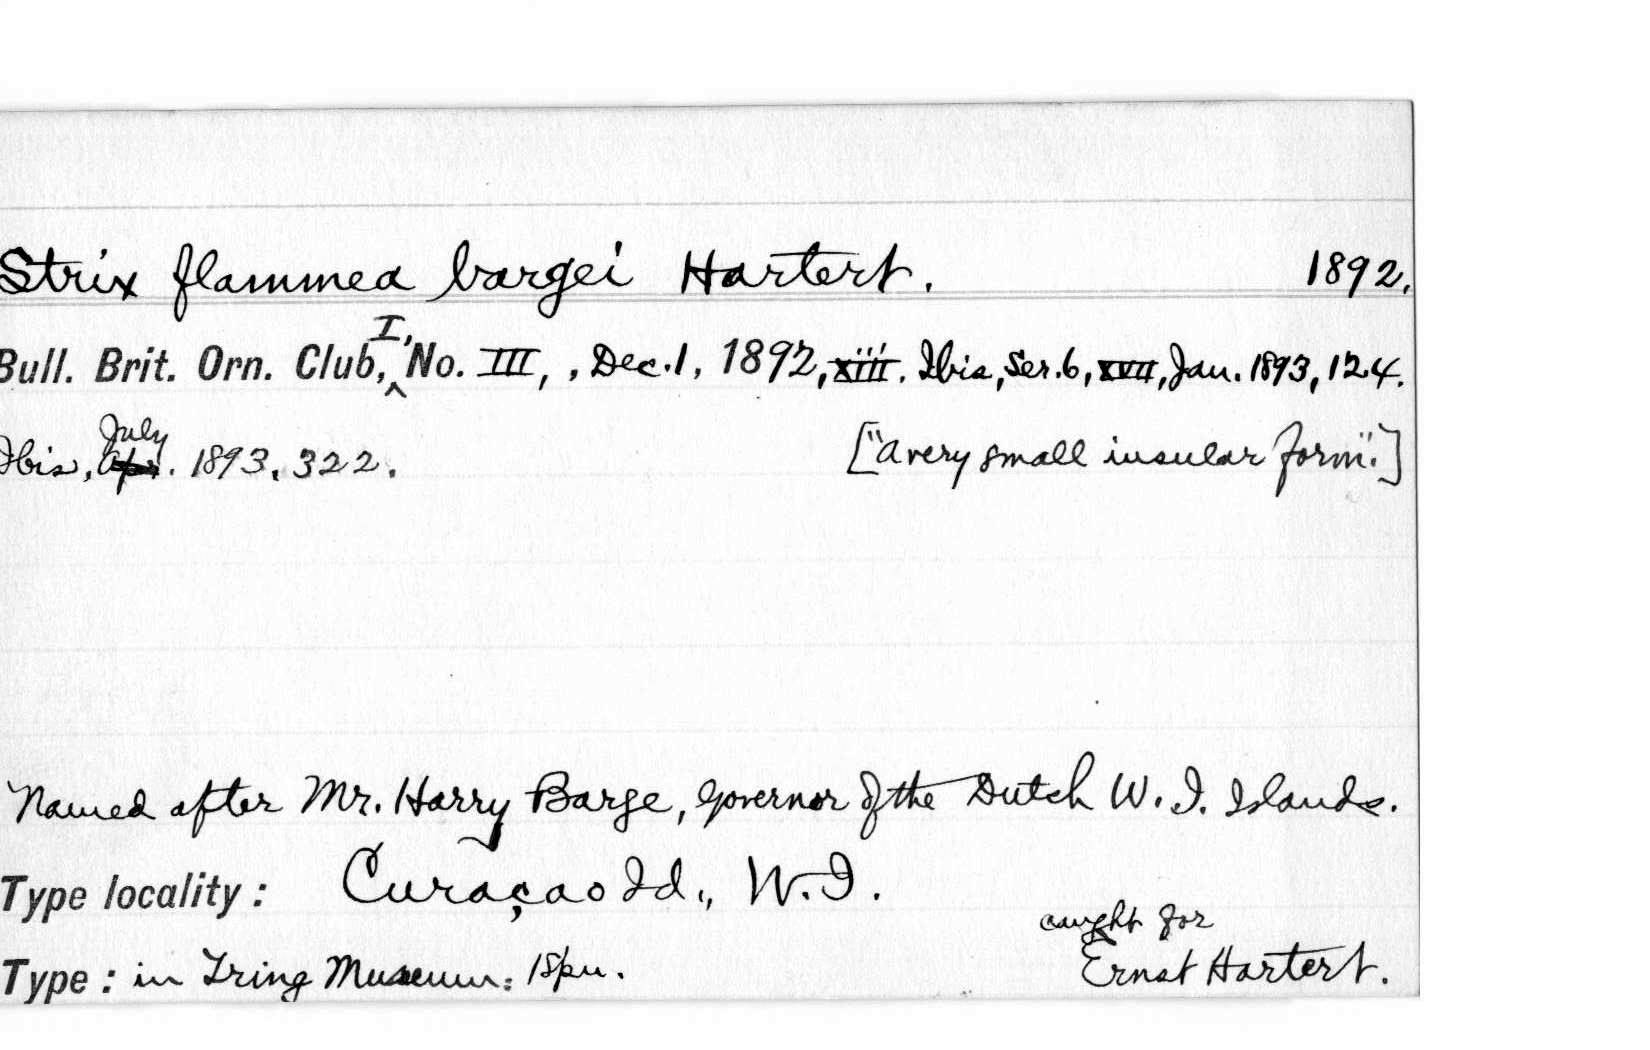 Strix flammea bargei Hartert. 1892.
Bull. Brit. Orn. Club, I, No. III, , Dec. 1, 1892, xiii. Ibis, Ser. 6, XVII, Jan. 1893, 124.
Ibis, Apr. July 1893, 322. ["a very small insular form".]
Named after Mr. Harry Barge, Governor of the Dutch W. I. Islands.
Type locality: Curaçao Id., W.I.
caught for
Type: in Tring Museum: 1 spn. Ernst Hartert.